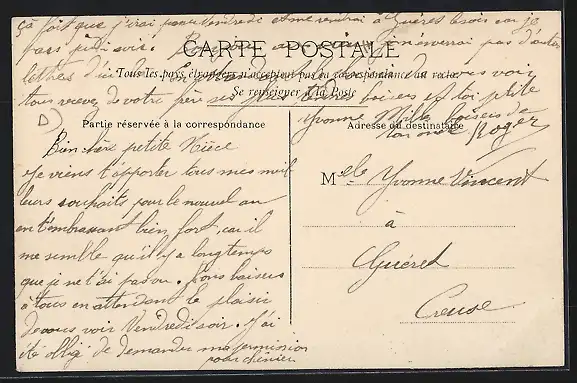 ça fait que j'irai pour vendredi et me rendrai à Guéret le soir car je
pars
CARTE POSTALE
lettres d'ici
Tous les pays étrangers n'acceptent pas la correspondance au recto.
Se renseigner à la Poste
tous recevez de votre père ses plus tendres baisers et toi petite
Yvonne Mille baisers de
ton oncle Roger
Partie réservée à la correspondance
Adresse du destinataire
Bien chère petite Nièce
Je viens t'apporter tous mes meil
leurs souhaits pour le nouvel an
en t'embrassant bien fort, car il
me semble qu'il y a longtemps
que je ne t'ai pas vu. Bons baisers
à tous en attendant le plaisir
de vous voir Vendredi soir. J'ai
été obligé de demander ma permission
pour
Melle Yvonne Vincent
à
Guéret
Creuse